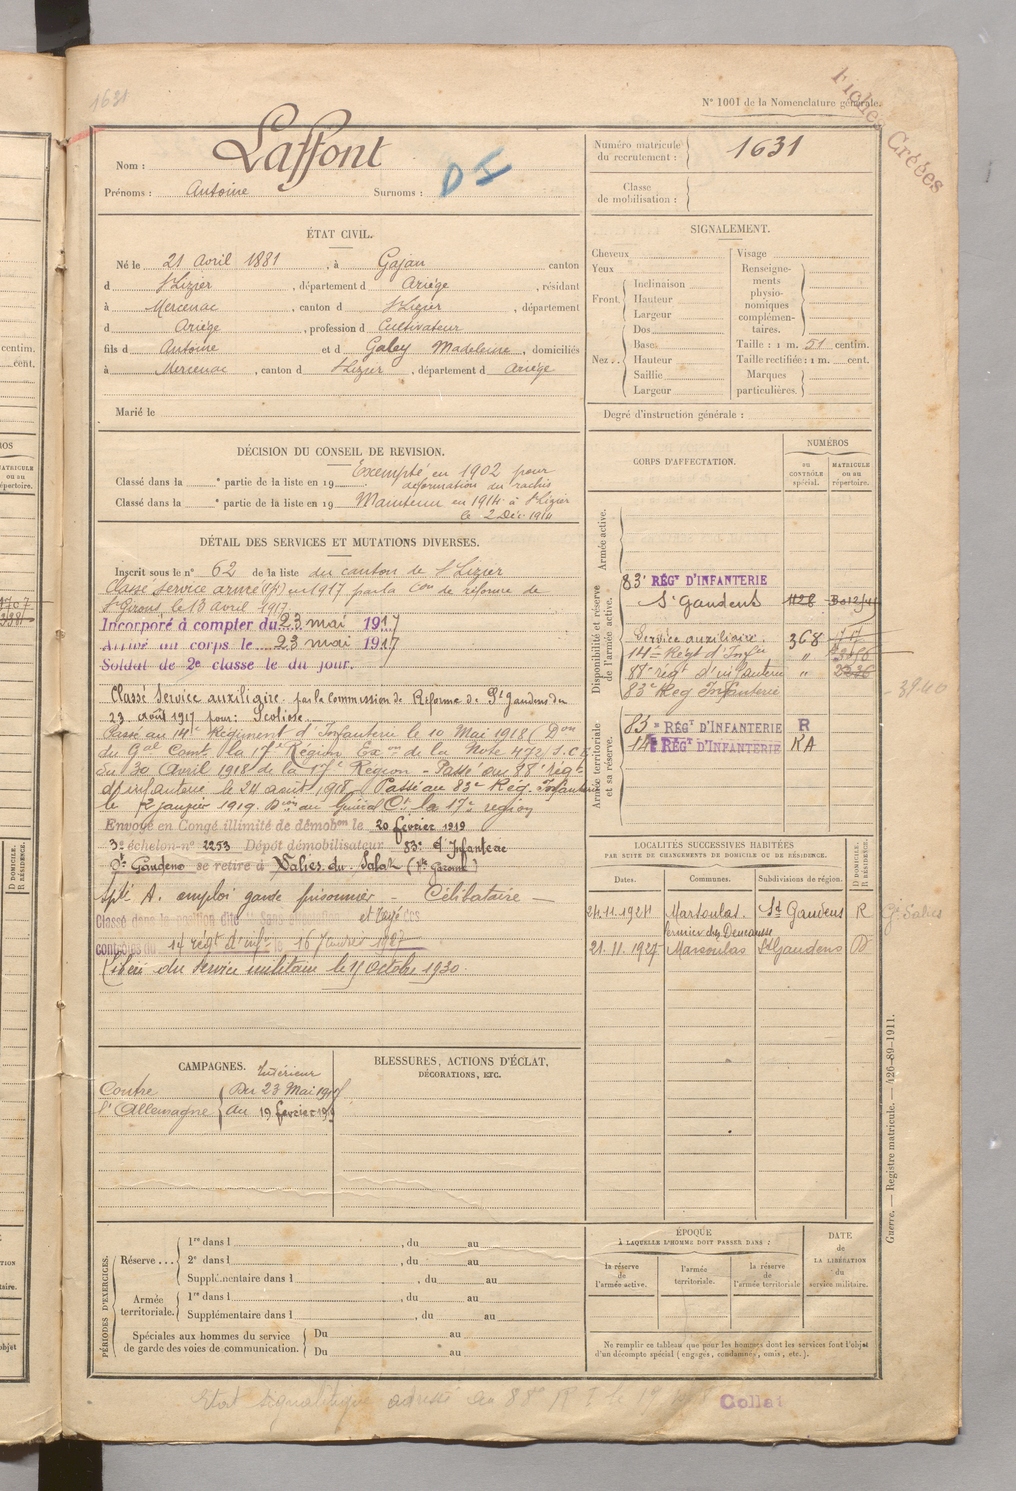 1631
N° 1001 de la Nomenclature générale.
Fiches Créées
Nom : Laffont
Prénoms : Antoine Surnoms :
D I
Numéro matricule du recrutement : 1631
Classe de mobilisation :
ÉTAT CIVIL.
Né le 21 Avril 1881, à Gajan canton
d St Lizier, département d Ariège, résidant
à Mercenac, canton d St Lizier, département
d Ariège, profession d Cultivateur
fils d Antoine et d Galey Madeleine, domiciliés
à Mercenac, canton d St Lizier, département d Ariège
Marié le
SIGNALEMENT.
Cheveux
Yeux
Front.
Inclinaison
Hauteur
Largeur
Nez..
Dos
Base
Hauteur
Saillie
Largeur
Visage
Renseigne-
ments
physio-
nomiques
complémen-
taires.
Taille : 1 m. 51 centim.
Taille rectifiée : 1 m. cent.
Marques
particulières.
Degré d'instruction générale :
DÉCISION DU CONSEIL DE REVISION.
Exempté en 1902 pour
Classé dans la e partie de la liste en 19 déformation du rachis
Classé dans la e partie de la liste en 19 Maintenu en 1914 à St Lizier
le 2 Déc. 1914
DÉTAIL DES SERVICES ET MUTATIONS DIVERSES.
Inscrit sous le n° 62 de la liste du canton de St Lizier
Classé service armé en 1917 par la Con de réforme de
St Girons, le 13 avril 1917.
Incorporé à compter du 23 mai 1917
Arrivé au corps le 23 mai 1917
Soldat de 2e classe le du jour.
Classé Service auxiliaire par la Commission de Réforme de St Gaudens du
23 août 1917 pour : Scoliose.
Passé au 14e Régiment d'Infanterie le 10 Mai 1918 (Don
du Gal Comt la 17e Région Exon de la Note 472/S.C.
du 30 Avril 1918 de la 17e Région - Passé au 88e régt
d'infanterie le 24 août 1918. Passé au 83e Rég. Infanterie
le 2 janvier 1919. Don du Général Ct la 17e région
Envoyé en Congé illimité de démobon le 20 février 1919
3e échelon-n° 2253 Dépôt démobilisateur 83e d'Infanterie
St Gaudens se retire à Salies du Salat (Hte Garonne)
Spté A. emploi garde prisonnier - Célibataire -
Classé dans la position dite "Sans affectation" et rayé des
contrôles du 14 régt d'infie le 16 Janvier 1927
Libéré du service militaire le 11 Octobre 1930.
CORPS D'AFFECTATION.
NUMÉROS
au CONTRÔLE spécial.
MATRICULE ou au répertoire.
Armée active.
Disponibilité et réserve de l'armée active.
83e RÉGT D'INFANTERIE
St Gaudens
Service auxiliaire. 368
14e Régt d'Infie "
88e régt d'infanterie "
83e Rég Infanterie
3940
Armée territoriale et sa réserve.
83e RÉGT D'INFANTERIE R
14e RÉGT D'INFANTERIE RA
LOCALITÉS SUCCESSIVES HABITÉES
PAR SUITE DE CHANGEMENTS DE DOMICILE OU DE RÉSIDENCE.
Dates. Communes. Subdivisions de région. D DOMICILE. R RÉSIDENCE.
24.11.1924 Marsoulas. St Gaudens R
21.11.1927 Marsoulas St Gaudens D
CAMPAGNES.
Intérieur
Contre l'Allemagne
Du 23 Mai 1917
au 19 février 1919
BLESSURES, ACTIONS D'ÉCLAT,
DÉCORATIONS, ETC.
PÉRIODES D'EXERCICES.
Réserve...
1re dans l , du au
2e dans l , du au
Supplémentaire dans l , du au
Armée territoriale.
1re dans l , du au
Supplémentaire dans l , du au
Spéciales aux hommes du service de garde des voies de communication.
Du au
Du au
ÉPOQUE
À LAQUELLE L'HOMME DOIT PASSER DANS :
la réserve de l'armée active.
l'armée territoriale.
la réserve de l'armée territoriale
DATE de LA LIBÉRATION du service militaire.
Ne remplir ce tableau que pour les hommes dont les services font l'objet
d'un décompte spécial (engagés, condamnés, omis, etc.).
Guerre. — Registre matricule. — 426-89-1911.
Etat signalétique adressé au 88e R I le
Collat